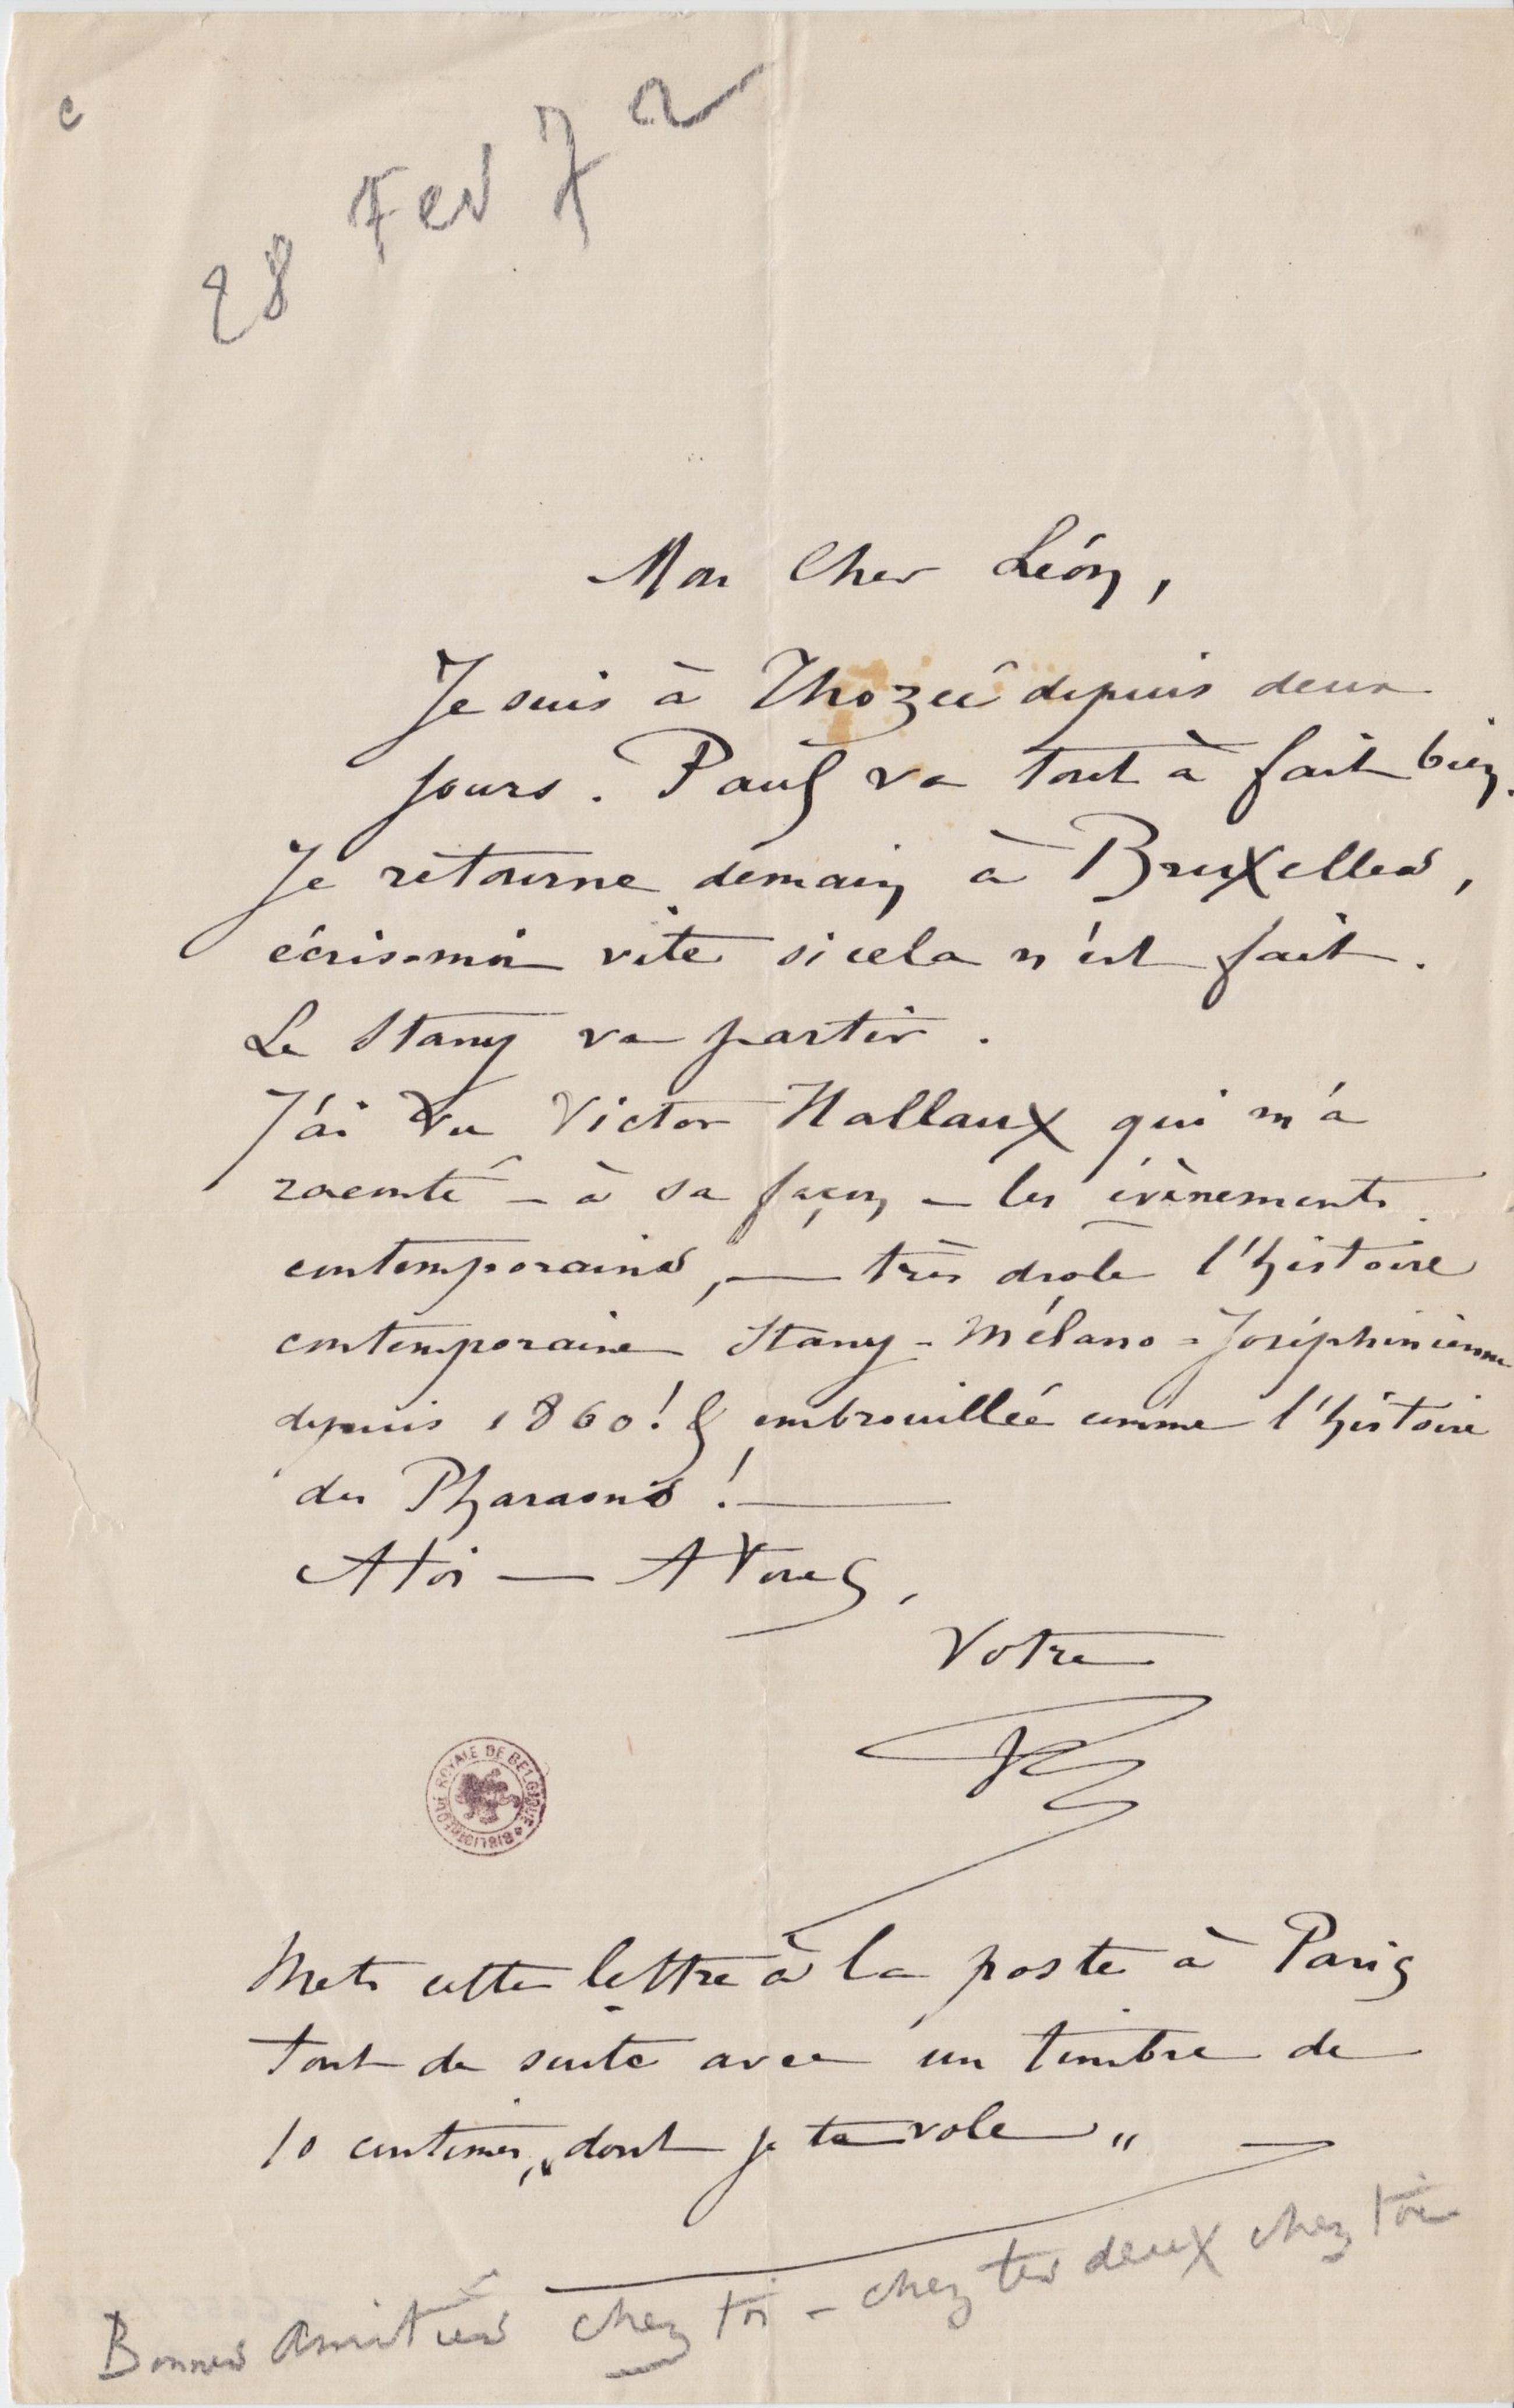 c
28 Fev 72
Mon Cher Léon,
Je suis à Thozée depuis deux
jours. Paul va tout à fait bien.
Je retourne demain à Bruxelles,
écris-moi vite si cela n'est fait.
Le Stany va partir.
J'ai vu Victor Hallaux qui m'a
raconté – à sa façon, – les évènements
contemporains, — très drole l'histoire
contemporaine Stany-Mélano-Joséphinienne
depuis 1860! & embrouillée comme l'histoire
des Pharaons! —
A toi — A Vous,
Votre
BIBLIOTHEQUE ROYALE DE BELGIQUE
Mets cette lettre à la poste à Paris
tout de suite avec un timbre de
10 centimes, „dont je te vole"
Bonnes amitiés chez toi – chez tes deux chez toi